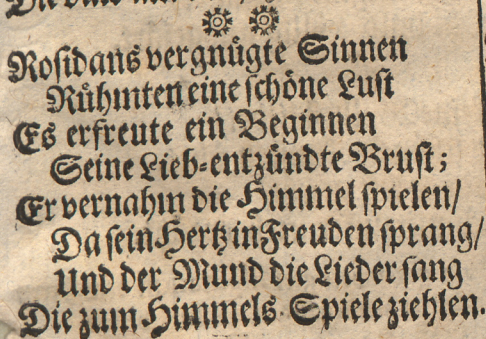 Rosidans vergnügte Sinnen
Rühmten eine schöne Lust
Es erfreute ein Beginnen
Seine Lieb-entzündte Brust;
Er vernahm die Himmel spielen/
Da sein Hertz in Freuden sprang/
Und der Mund die Lieder sang
Die zum Himmels-Spiele ziehlen.